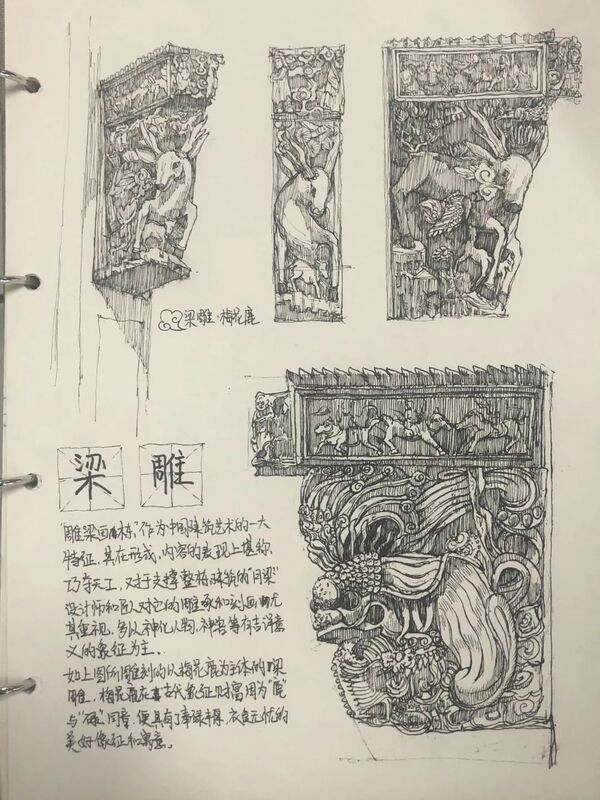 梁雕·梅花鹿
梁雕
"雕梁画栋"作为中国建筑艺术的一大
特征，其在形成、内容的表现上堪称
巧夺天工，对于支撑整栋建筑的"月梁"
设计师和匠人对它的雕琢和刻画尤
其重视，多以神化人物，神兽等有吉祥意
义的象征为主。
如上图所雕刻的以梅花鹿为主体的梁
雕，梅花鹿在古代象征财富因为"鹿"
与"禄"同音，便具有了奉禄丰厚，衣食无忧的
美好像征和寓意。